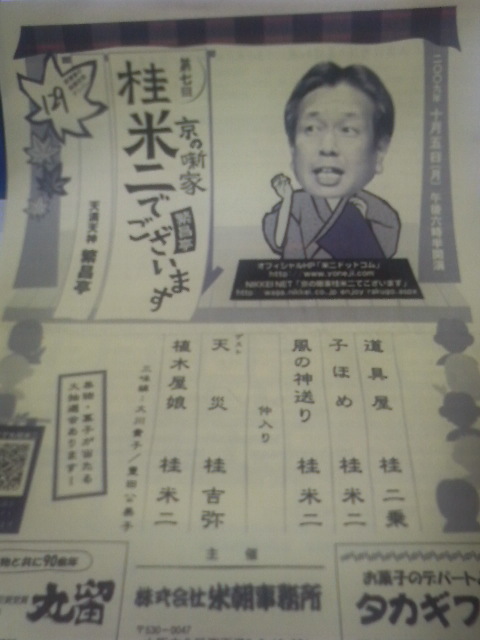 二〇〇九年 十月五日(月) 午後六時半開演
第七回
京の噺家
桂米二でございます
繁昌亭
天満天神 繁昌亭
オフィシャルHP「米二ドットコム」
http://www.yoneji.com
NIKKEI NET「京の噺家桂米二でございます」
道具屋 桂二乗
子ほめ 桂米二
風の神送り 桂米二
仲入り
ゲスト
天災 桂吉弥
植木屋娘 桂米二
三味線=大川貴子/豊田公美子
お菓子が当たる
大抽選会あります!
主催
株式会社米朝事務所
〒530-0047
と共に90余年
丸留
お菓子のデパート
タカギフ